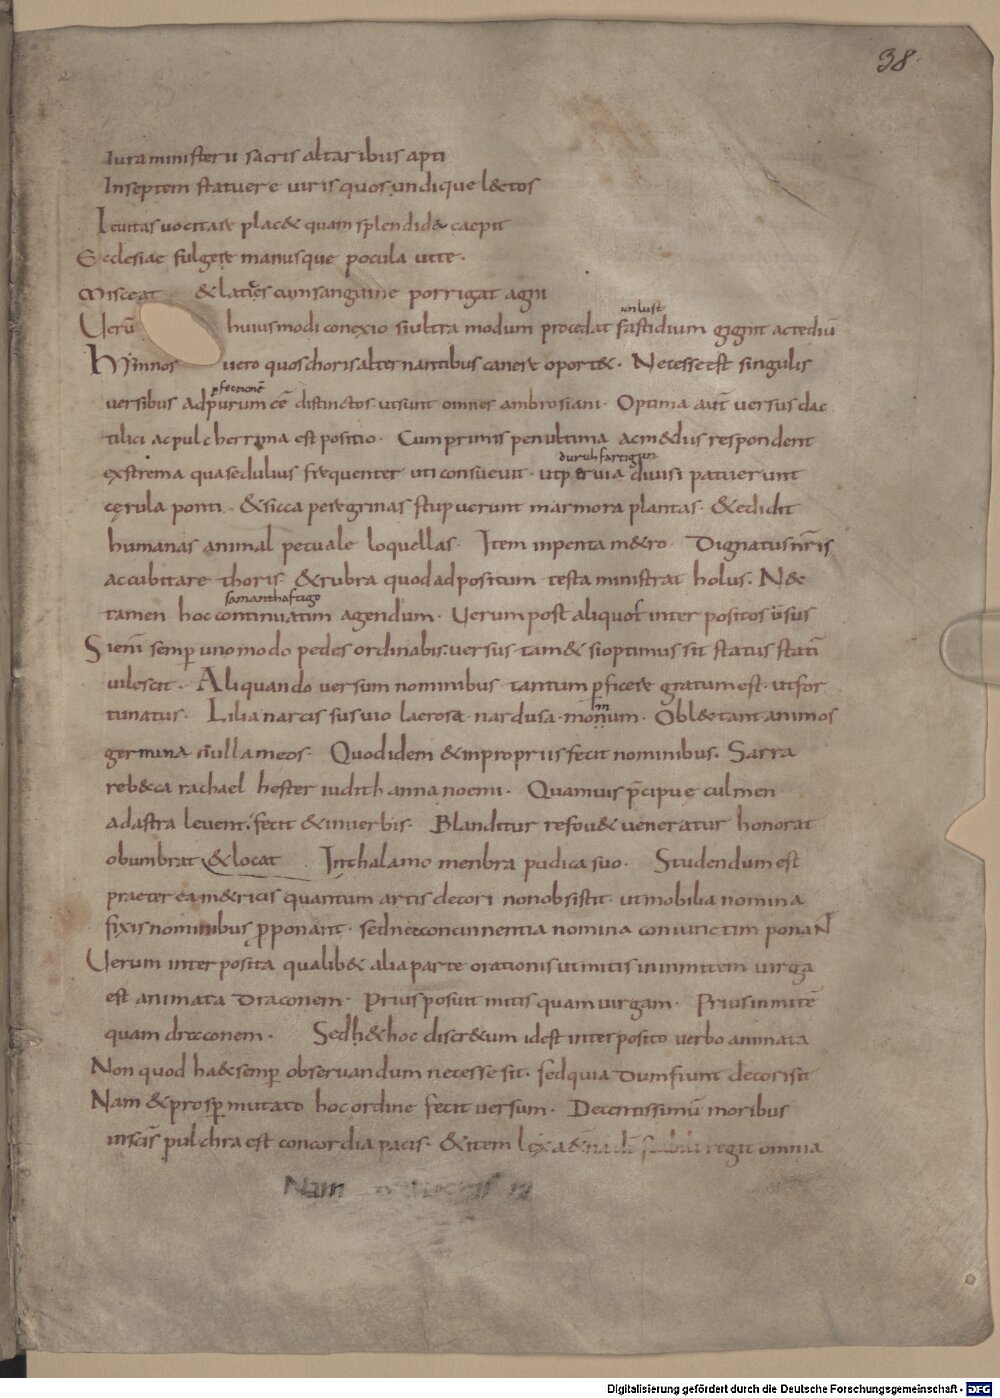 38.
Iura ministerii sacris altaribus apti
Inseptem statuere uiris quos undique l&tos
Leuitas uocitare plac& quam splendid& caepit
Ecclesiae fulgere manusque pocula uitte.
Misceat & latices cumsanguine porrigat agni
unlust
Uerū huiusmodi conexio siultra modum procedat fastidium gignit actediū
Hymnos uero quoschorisalternantibus canere oport&. Necesseest singulis
pfectionē
versibus adpurum cē distinctos. utsunt omnes ambrosiani. Optima aut̄ uersus dac
tilici acpulcherrima est positio. Cumprimis penultima acmedius respondent
duruhfartigun
exstrema quasedulius frequenter uti consueuit. utp eruia diuisi patuerunt
cęrula ponti. & sicca peregrinas stupuerunt marmora plantas. & edidit
humanas animal pecuale loquellas. Item inpentam&ro. Dignatus nr̄is
accubitare thoris. & rubra quodadpositum testa ministrat holus. N&
samanthaftigo
tamen hoc continuatim agendum. Uerum post aliquot inter positos uersus
Sienī semp unomodo pedes ordinabis. uersus tam& sioptimus sit status stati
uilescit. Aliquando uersum nominibus tantum pficere gratumest. utfor
tunatus. Lilia narcis sus uio laerosa nardusa. momum. Obl&tant animos
germina nulla meos. Quodidem & inpropriis fecit nominibus. Sarra
reb&ca rachael hester iudith anna noemi. Quamuis p̄cipue culmen
adastra leuent. fecit & inuerbis. Blanditur refou& ueneratur honorat
obumbrat & locat Inthalamo menbra pudica suo. Studendum est
praeter ea m&ricis quantum artis decori nonobsistit. ut mobilia nomina
fixis nominibus pponant. sednecconcinnentia nomina coniunctim ponaN
Uerum interposita qualib& alia parte orationis ut mitis in inmitem uirga
est animata Draconem. Prius posuit mitis quam uirgam. Prius inmitē
quam draconem. Sed & hoc discr&um idest interposito uerbo animata
Non quod ha& semp obseruandum necesse sit. sed quia Dumfiunt decorisit
Nam & prosp mutato hoc ordine fecit uersum. Decentissimū moribus
inscīs pulchra est concordia pacis. & item lex regit omnia
Nam
Digitalisierung gefördert durch die Deutsche Forschungsgemeinschaft - DFG